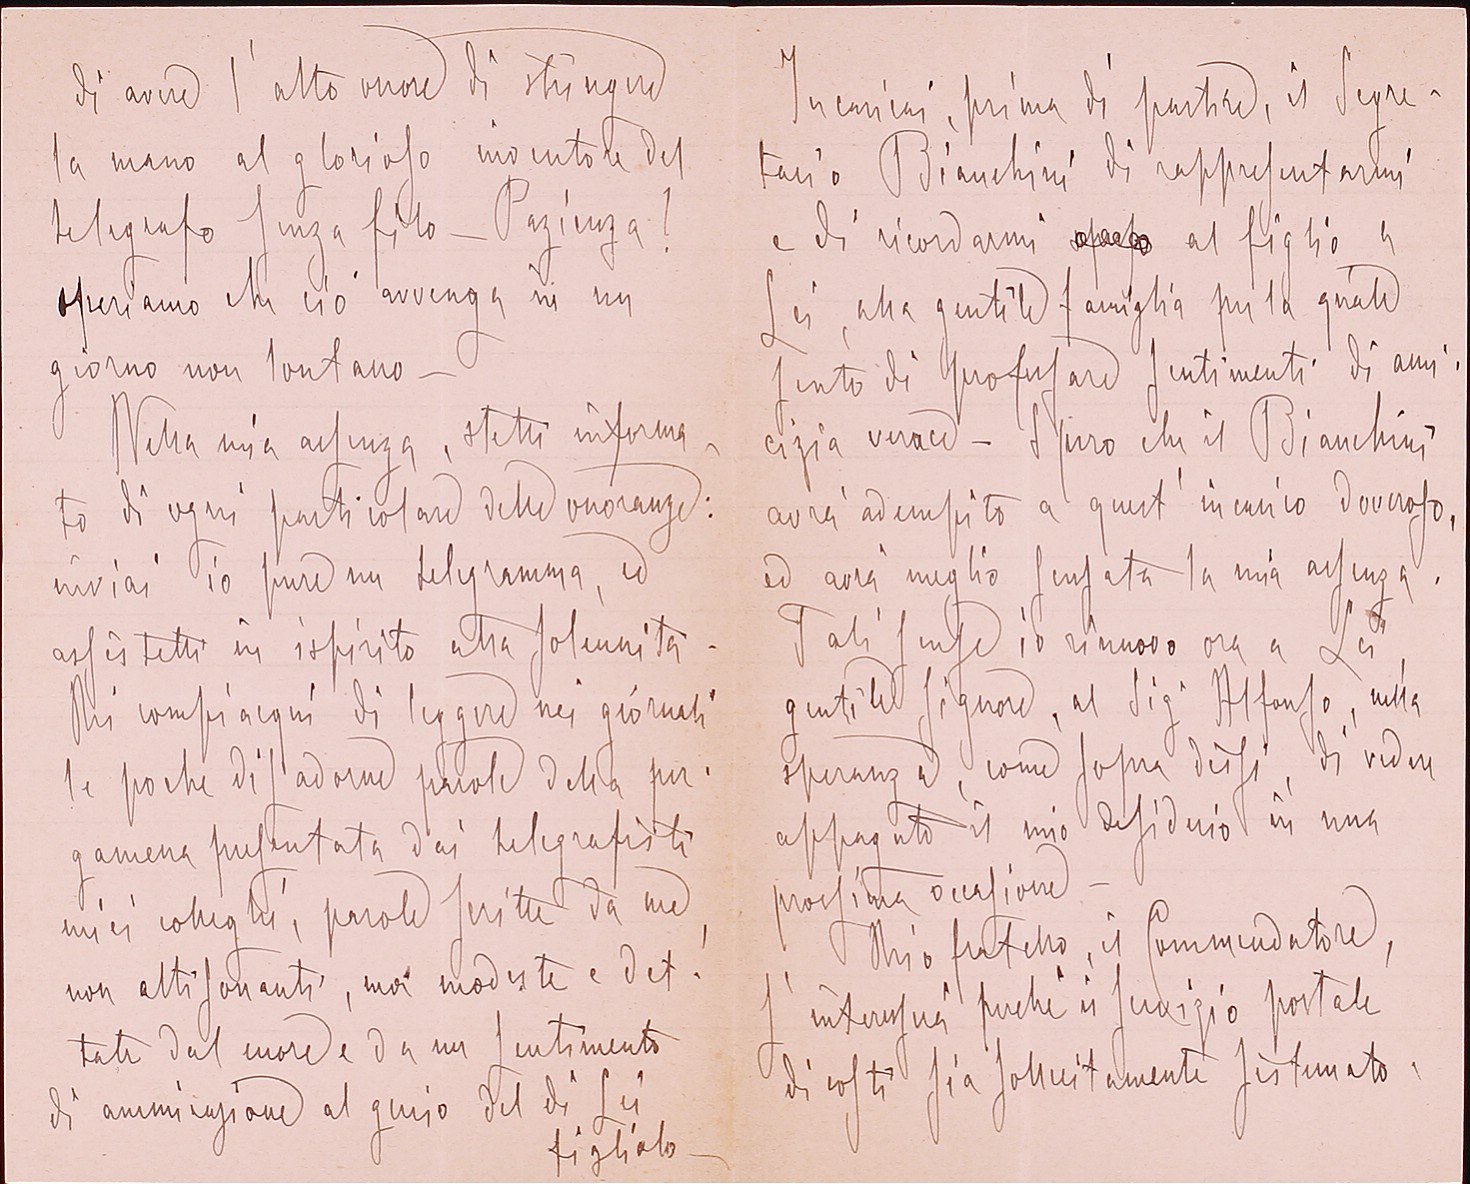 di avere l'alto onore di stringere
la mano al glorioso inventore del
telegrafo senza filo – Pazienza!
speriamo che ciò avvenga in un
giorno non lontano –
Nella mia assenza, stetti informa-
to di ogni particolare delle onoranze:
inviai io pure un telegramma, ed
assistetti in ispirito alla solennità –
Mi compiacqui di leggere nei giornali
le poche disadorne parole della per-
gamena presentata dai telegrafisti
miei colleghi, parole scritte da me,
non altisonanti, ma modeste e det-
tate dal cuore e da un sentimento
di ammirazione al genio del di Lei
figliolo –
Incaricai, prima di partire, il Segre-
tario Bianchini di rappresentarmi
e di ricordarmi al figlio a
Lei, alla gentile famiglia per la quale
sento di professare sentimenti di ami-
cizia verace – Spero che il Bianchini
avrà adempito a quest'incarico doveroso,
ed avrà meglio scusata la mia assenza.
Tali scuse io rinnovo ora a Lei,
gentile Signore, al Sigr Alfonso, nella
speranza, come sopra dissi, di vedere
appagato il mio desiderio in una
prossima occasione –
Mio fratello, il Commendatore,
s'interessa perchè il servizio postale
di costì sia sollecitamente sistemato.